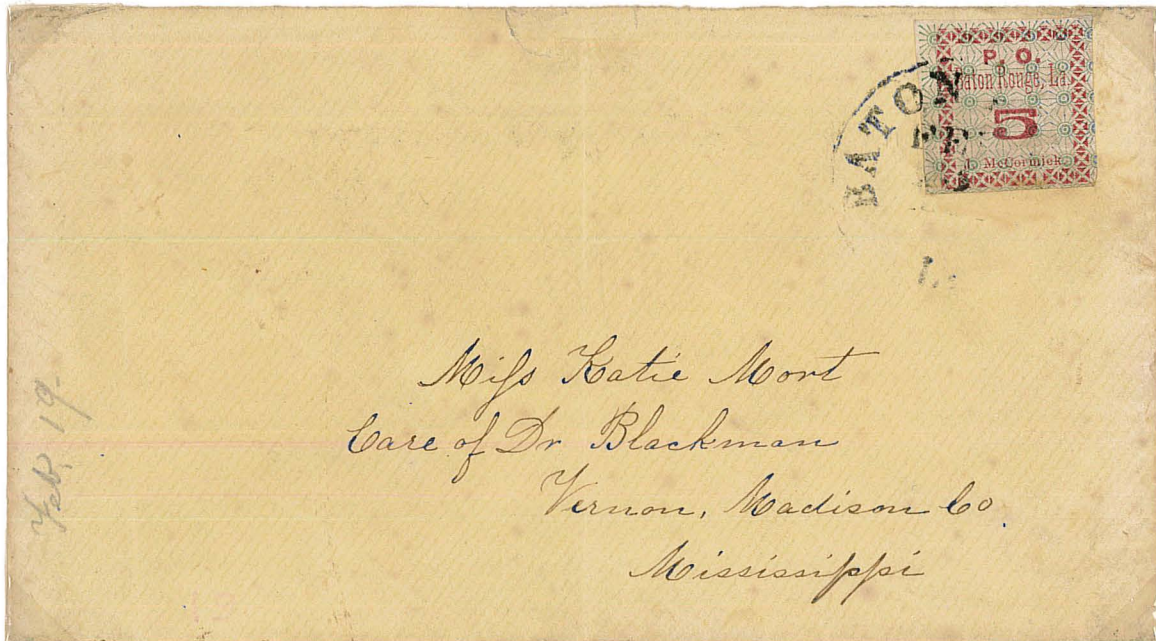 P. O.
Baton Rouge, La.
5
J. McCormick
BATON
FE
Miſs Katie Mort
Care of Dr Blackman
Vernon, Madison Co.
Mississippi
Feb. 19